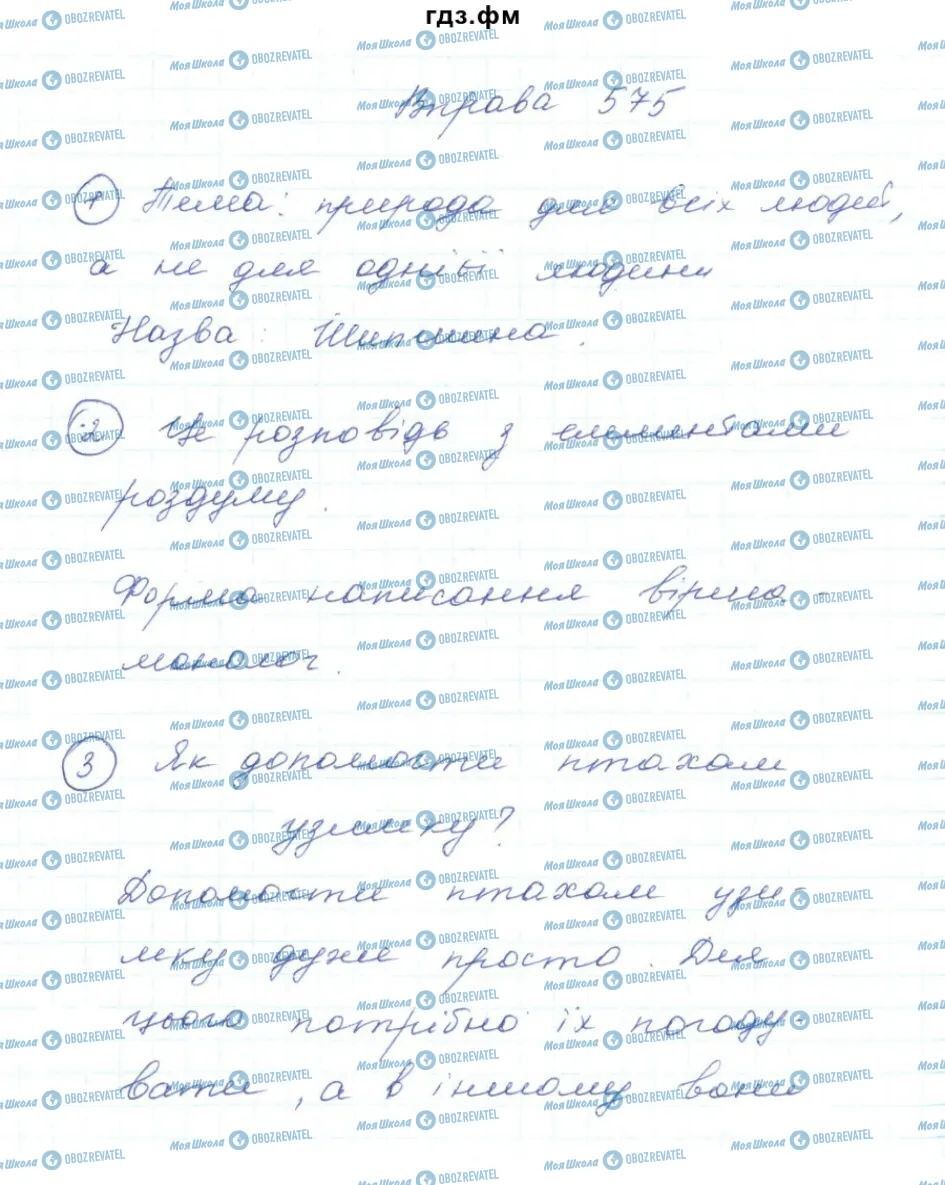 гдз.фм
Вправа 575
1 Тема: природа для всіх людей,
а не для однієї людини
Назва: Шипшина.
2 Це розповідь з елементами
роздуму.
Форма написання вірша -
монолог.
3 Як допомогти птахам
узимку?
Допомогти птахам узи-
мку дуже просто. Для
цього потрібно їх погоду-
вати, а в іншому вони